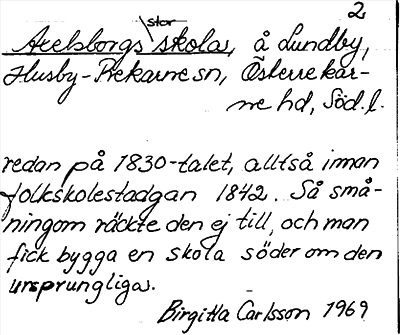 2
stor
Axelsborgs skola, å Lundby,
Husby-Rekarne sn, Österrekar-
ne hd, Söd.l.
redan på 1830-talet, alltså innan
folkskolestadgan 1842. Så små-
ningom räckte den ej till, och man
fick bygga en skola söder om den
ursprungliga.
Birgitta Carlsson 1969